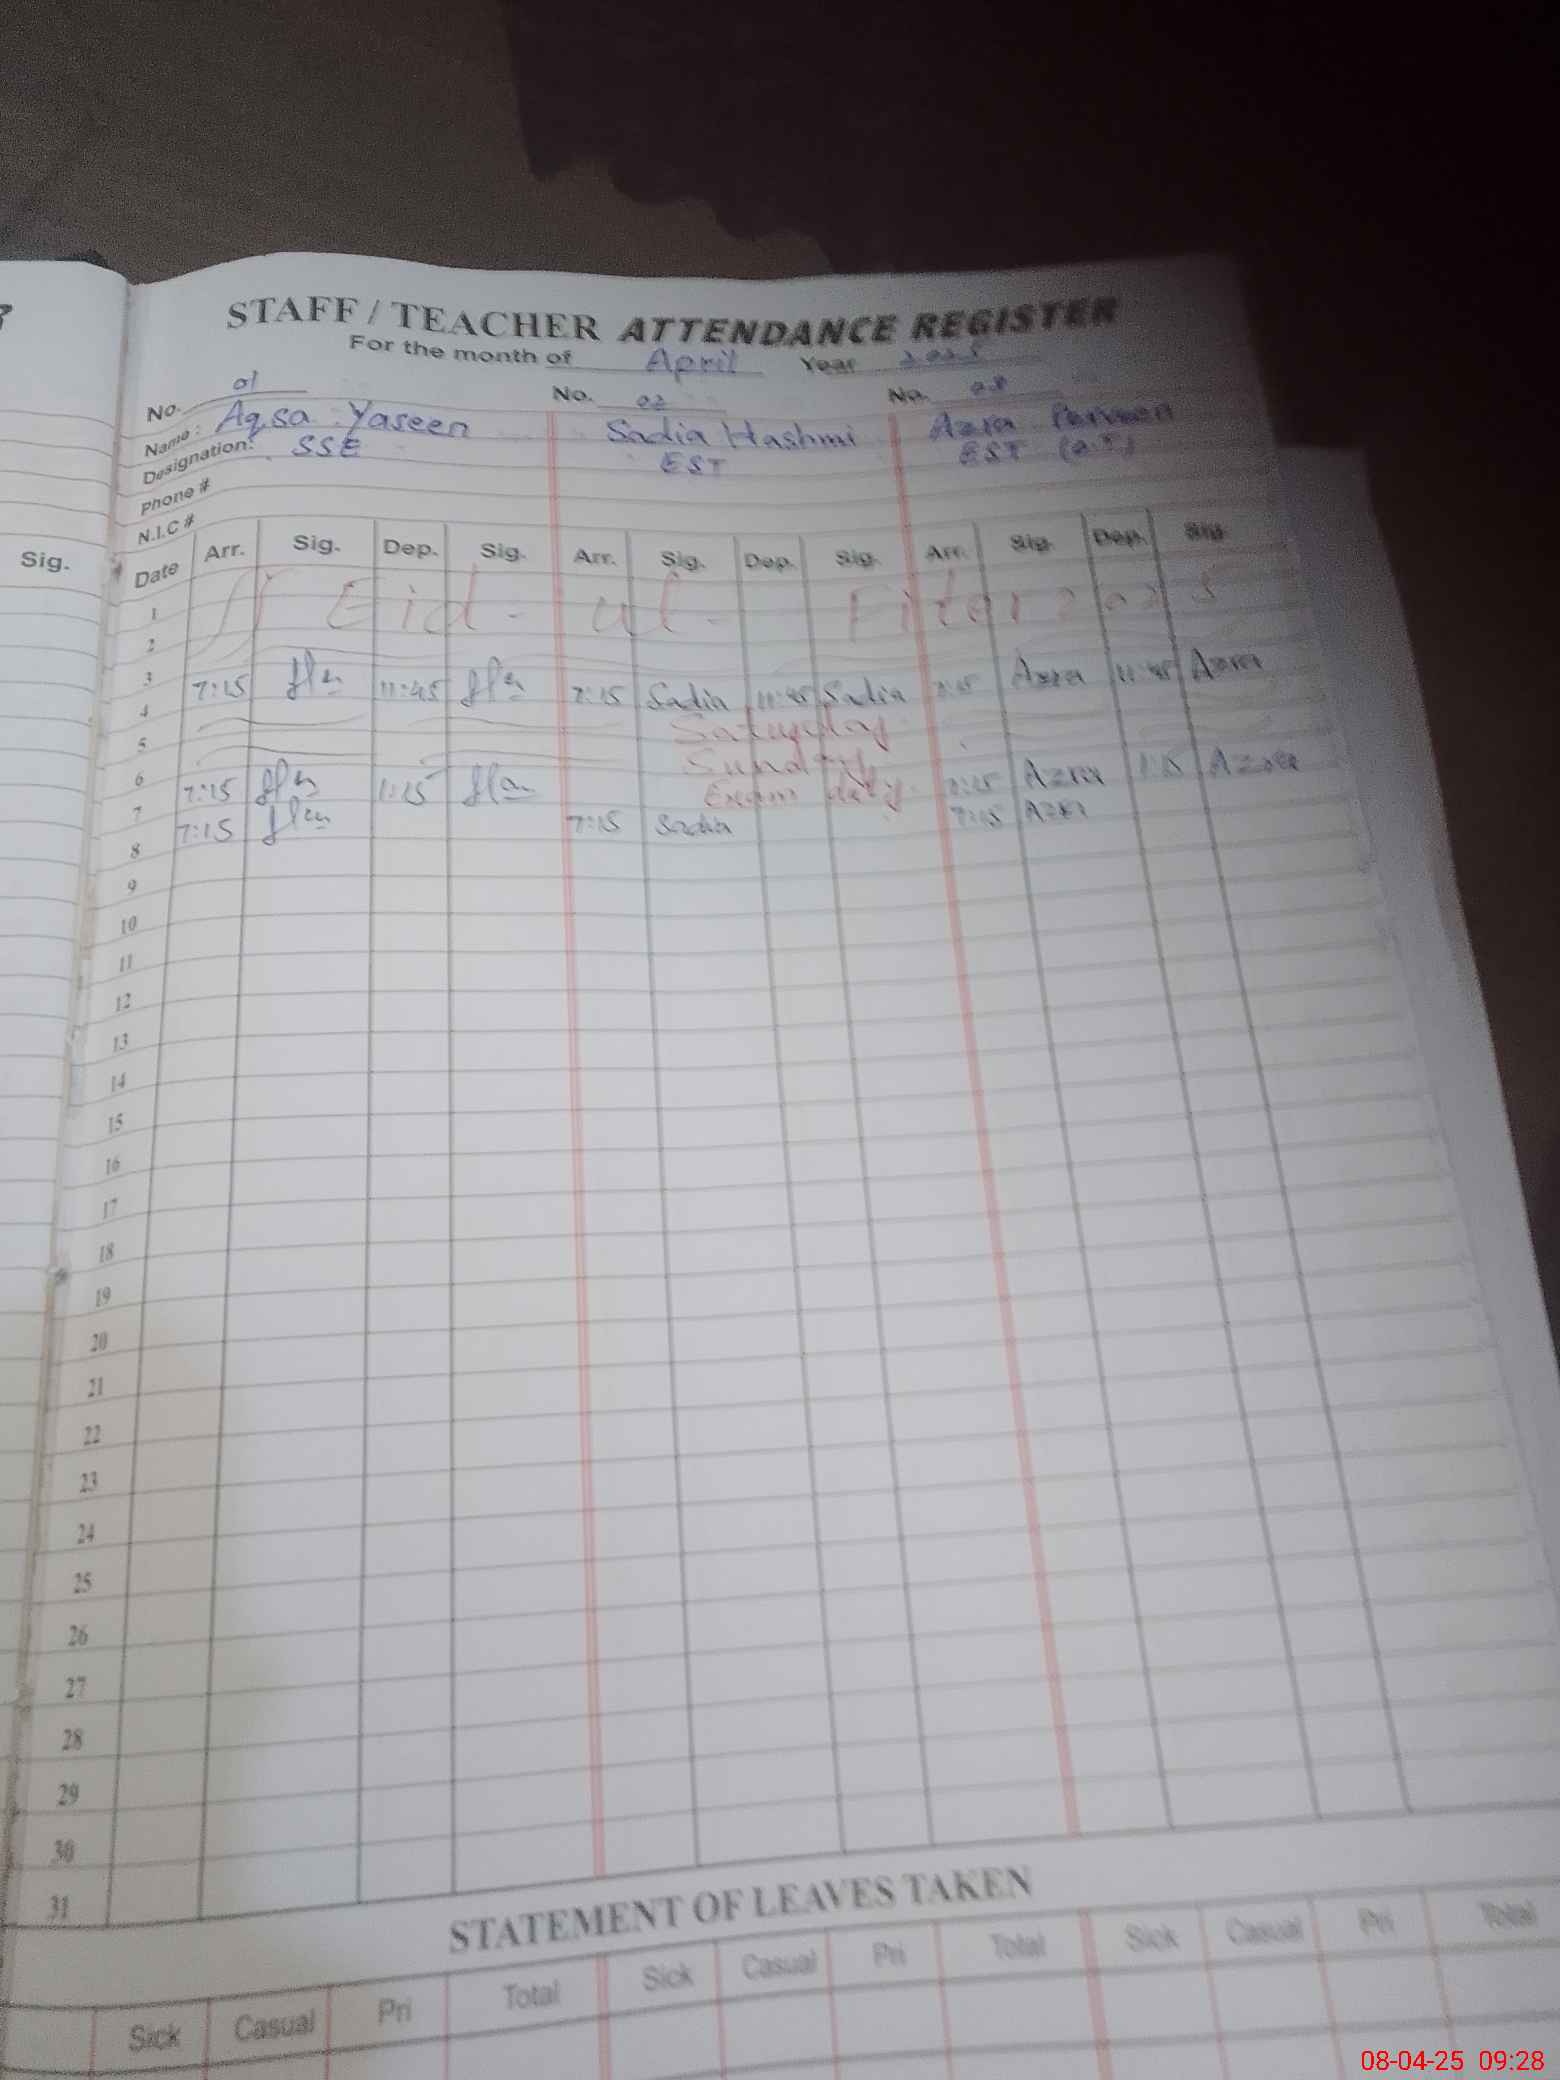 STAFF / TEACHER ATTENDANCE REGISTER
For the month of April Year 2025
No. 01 No. 02 No.
Name: Aqsa Yaseen Sadia Hashmi Azra Parveen
Designation: SSE EST EST
Phone #
N.I.C #
Sig. Date Arr. Sig. Dep. Sig. Arr. Sig. Dep. Sig. Arr. Sig. Dep. Sig.
1 Eid-ul-Fiter 2025
2
3
4 7:15 11:45 7:15 Sadia 11:45 Sadia 7:15 Azra 11:45 Azra
5 Saturday
6 Sunday
7 7:15 1:15 Exam duty 7:15 Azra 1:15 Azra
8 7:15 7:15 Sadia 7:15 Azra
9
10
11
12
13
14
15
16
17
18
19
20
21
22
23
24
25
26
27
28
29
30
31
STATEMENT OF LEAVES TAKEN
Sick Casual Pri Total Sick Casual Pri Total Sick Casual Pri Total
08-04-25 09:28